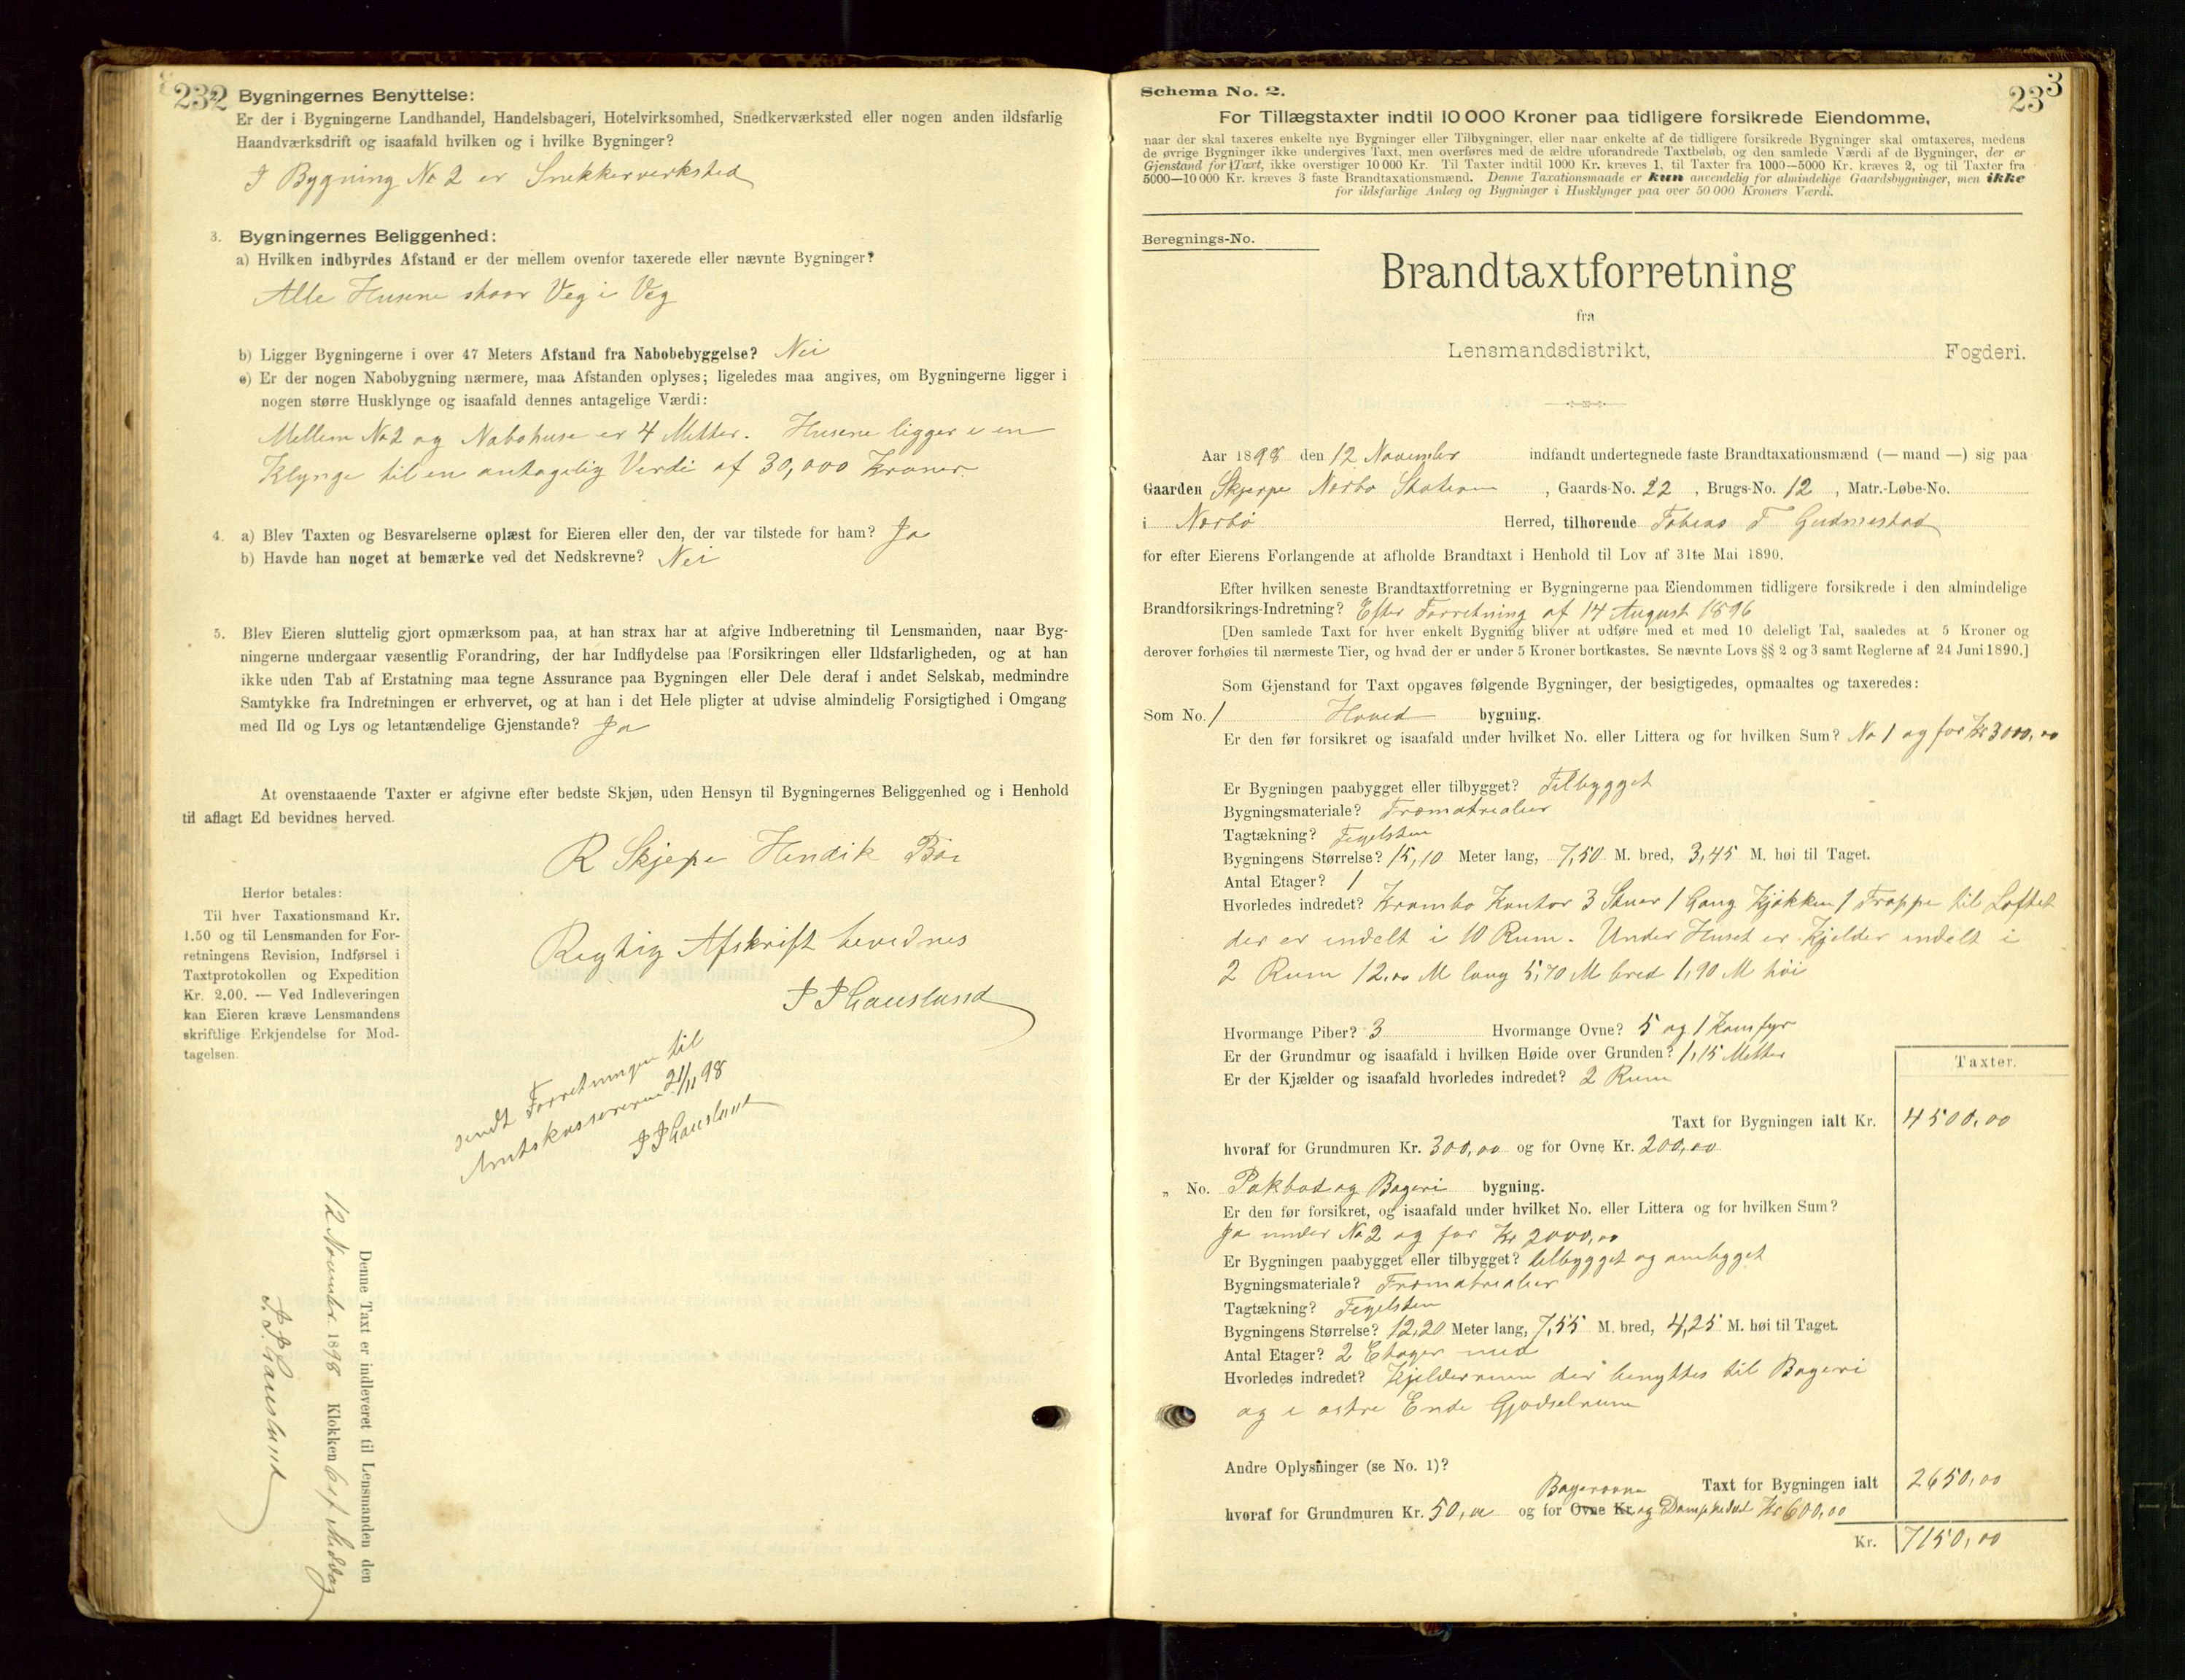 232
Bygningernes Benyttelse:
Er der i Bygningerne Landhandel, Handelsbageri, Hotelvirksomhed, Snedkerværksted eller nogen anden ildsfarlig
Haandværksdrift og isaafald hvilken og i hvilke Bygninger?
I Bygning No 2 er Snekkerverksted
3. Bygningernes Beliggenhed:
a) Hvilken indbyrdes Afstand er der mellem ovenfor taxerede eller nævnte Bygninger?
Alle Husene staar Veg i Veg
b) Ligger Bygningerne i over 47 Meters Afstand fra Nabobebyggelse? Nei
c) Er der nogen Nabobygning nærmere, maa Afstanden oplyses; ligeledes maa angives, om Bygningerne ligger i
nogen større Husklynge og isaafald dennes antagelige Værdi:
Mellem No 2 og Nabohuse er 4 Metter. Husene ligger i en
Klynge til en antagelig Verdi af 30,000 Kroner
4. a) Blev Taxten og Besvarelserne oplæst for Eieren eller den, der var tilstede for ham? Ja
b) Havde han noget at bemærke ved det Nedskrevne? Nei
5. Blev Eieren sluttelig gjort opmærksom paa, at han strax har at afgive Indberetning til Lensmanden, naar Byg-
ningerne undergaar væsentlig Forandring, der har Indflydelse paa Forsikringen eller Ildsfarligheden, og at han
ikke uden Tab af Erstatning maa tegne Assurance paa Bygningen eller Dele deraf i andet Selskab, medmindre
Samtykke fra Indretningen er erhvervet, og at han i det Hele pligter at udvise almindelig Forsigtighed i Omgang
med Ild og Lys og letantændelige Gjenstande? Ja
At ovenstaaende Taxter er afgivne efter bedste Skjøn, uden Hensyn til Bygningernes Beliggenhed og i Henhold
til aflagt Ed bevidnes herved.
R Skjepe Hendik Bøe
Rigtig Afskrift bevidnes
P P Gausland
Herfor betales:
Til hver Taxationsmand Kr.
1.50 og til Lensmanden for For-
retningens Revision, Indførsel i
Taxtprotokollen og Expedition
Kr. 2.00. — Ved Indleveringen
kan Eieren kræve Lensmandens
skriftlige Erkjendelse for Mod-
tagelsen.
sendt Forretningen til
Amtskassereren 21/11 98
P P Gausland
Denne Taxt er indleveret til Lensmanden den
12 November 1898 Klokken 6 ef Midag
P. P. Gausland
233
Schema No. 2.
For Tillægstaxter indtil 10 000 Kroner paa tidligere forsikrede Eiendomme,
naar der skal taxeres enkelte nye Bygninger eller Tilbygninger, eller naar enkelte af de tidligere forsikrede Bygninger skal omtaxeres, medens
de øvrige Bygninger ikke undergives Taxt, men overføres med de ældre uforandrede Taxtbeløb, og den samlede Værdi af de Bygninger, der er
Gjenstand for Taxt, ikke overstiger 10 000 Kr. Til Taxter indtil 1000 Kr. kræves 1, til Taxter fra 1000—5000 Kr. kræves 2, og til Taxter fra
5000—10 000 Kr. kræves 3 faste Brandtaxationsmænd. Denne Taxationsmaade er kun anvendelig for almindelige Gaardsbygninger, men ikke
for ildsfarlige Anlæg og Bygninger i Husklynger paa over 50 000 Kroners Værdi.
Beregnings-No.
Brandtaxtforretning
fra
Lensmandsdistrikt, Fogderi.
Aar 1898 den 12 November indfandt undertegnede faste Brandtaxationsmænd (— mand —) sig paa
Gaarden Skjerpe Nærbø Station, Gaards-No. 22, Brugs-No. 12, Matr.-Løbe-No.
i Nærbø Herred, tilhørende Tobias T Gudmestad
for efter Eierens Forlangende at afholde Brandtaxt i Henhold til Lov af 31te Mai 1890.
Efter hvilken seneste Brandtaxtforretning er Bygningerne paa Eiendommen tidligere forsikrede i den almindelige
Brandforsikrings-Indretning? Efter Forretning af 14 August 1896
[Den samlede Taxt for hver enkelt Bygning bliver at udføre med et med 10 deleligt Tal, saaledes at 5 Kroner og
derover forhøies til nærmeste Tier, og hvad der er under 5 Kroner bortkastes. Se nævnte Lovs §§ 2 og 3 samt Reglerne af 24 Juni 1890.]
Som Gjenstand for Taxt opgaves følgende Bygninger, der besigtigedes, opmaaltes og taxeredes:
Som No. 1 Hoved bygning.
Er den før forsikret og isaafald under hvilket No. eller Littera og for hvilken Sum? No 1 og for Kr 3000,00
Er Bygningen paabygget eller tilbygget? Tilbygget
Bygningsmateriale? Træmatrealier
Tagtækning? Tegelsten
Bygningens Størrelse? 15,10 Meter lang, 7,50 M. bred, 3,45 M. høi til Taget.
Antal Etager? 1
Hvorledes indredet? Krambo Kontor 3 Stuer 1 Gang Kjøkken 1 Trappe til Loftet
der er indelt i 10 Rum. Under Huset er Kjelder indelt i
2 Rum 12,00 M lang 5,70 M bred 1,90 M høi
Hvormange Piber? 3 Hvormange Ovne? 5 og 1 Komfyr
Er der Grundmur og isaafald i hvilken Høide over Grunden? 1,15 Metter
Er der Kjælder og isaafald hvorledes indredet? 2 Rum
Taxter.
Taxt for Bygningen ialt Kr. 4500,00
hvoraf for Grundmuren Kr. 300,00 og for Ovne Kr. 200,00
„ No. Pakbod og Bageri bygning.
Er den før forsikret, og isaafald under hvilket No. eller Littera og for hvilken Sum?
Ja under No 2 og for Kr 2000,00
Er Bygningen paabygget eller tilbygget? tilbygget og ombygget
Bygningsmateriale? Træmatrealier
Tagtækning? Tegelsten
Bygningens Størrelse? 12,20 Meter lang, 7,55 M. bred, 4,25 M. høi til Taget.
Antal Etager? 2 Etager med
Hvorledes indredet? Kjelderrum der benyttes til Bageri
og i østre Ende Gjødselrum
Andre Oplysninger (se No. 1)?
Bagerovne Taxt for Bygningen ialt 2650,00
hvoraf for Grundmuren Kr. 50,00 og for Ovne Kr. og Dampkedel Kr 600,00
Kr. 7150,00